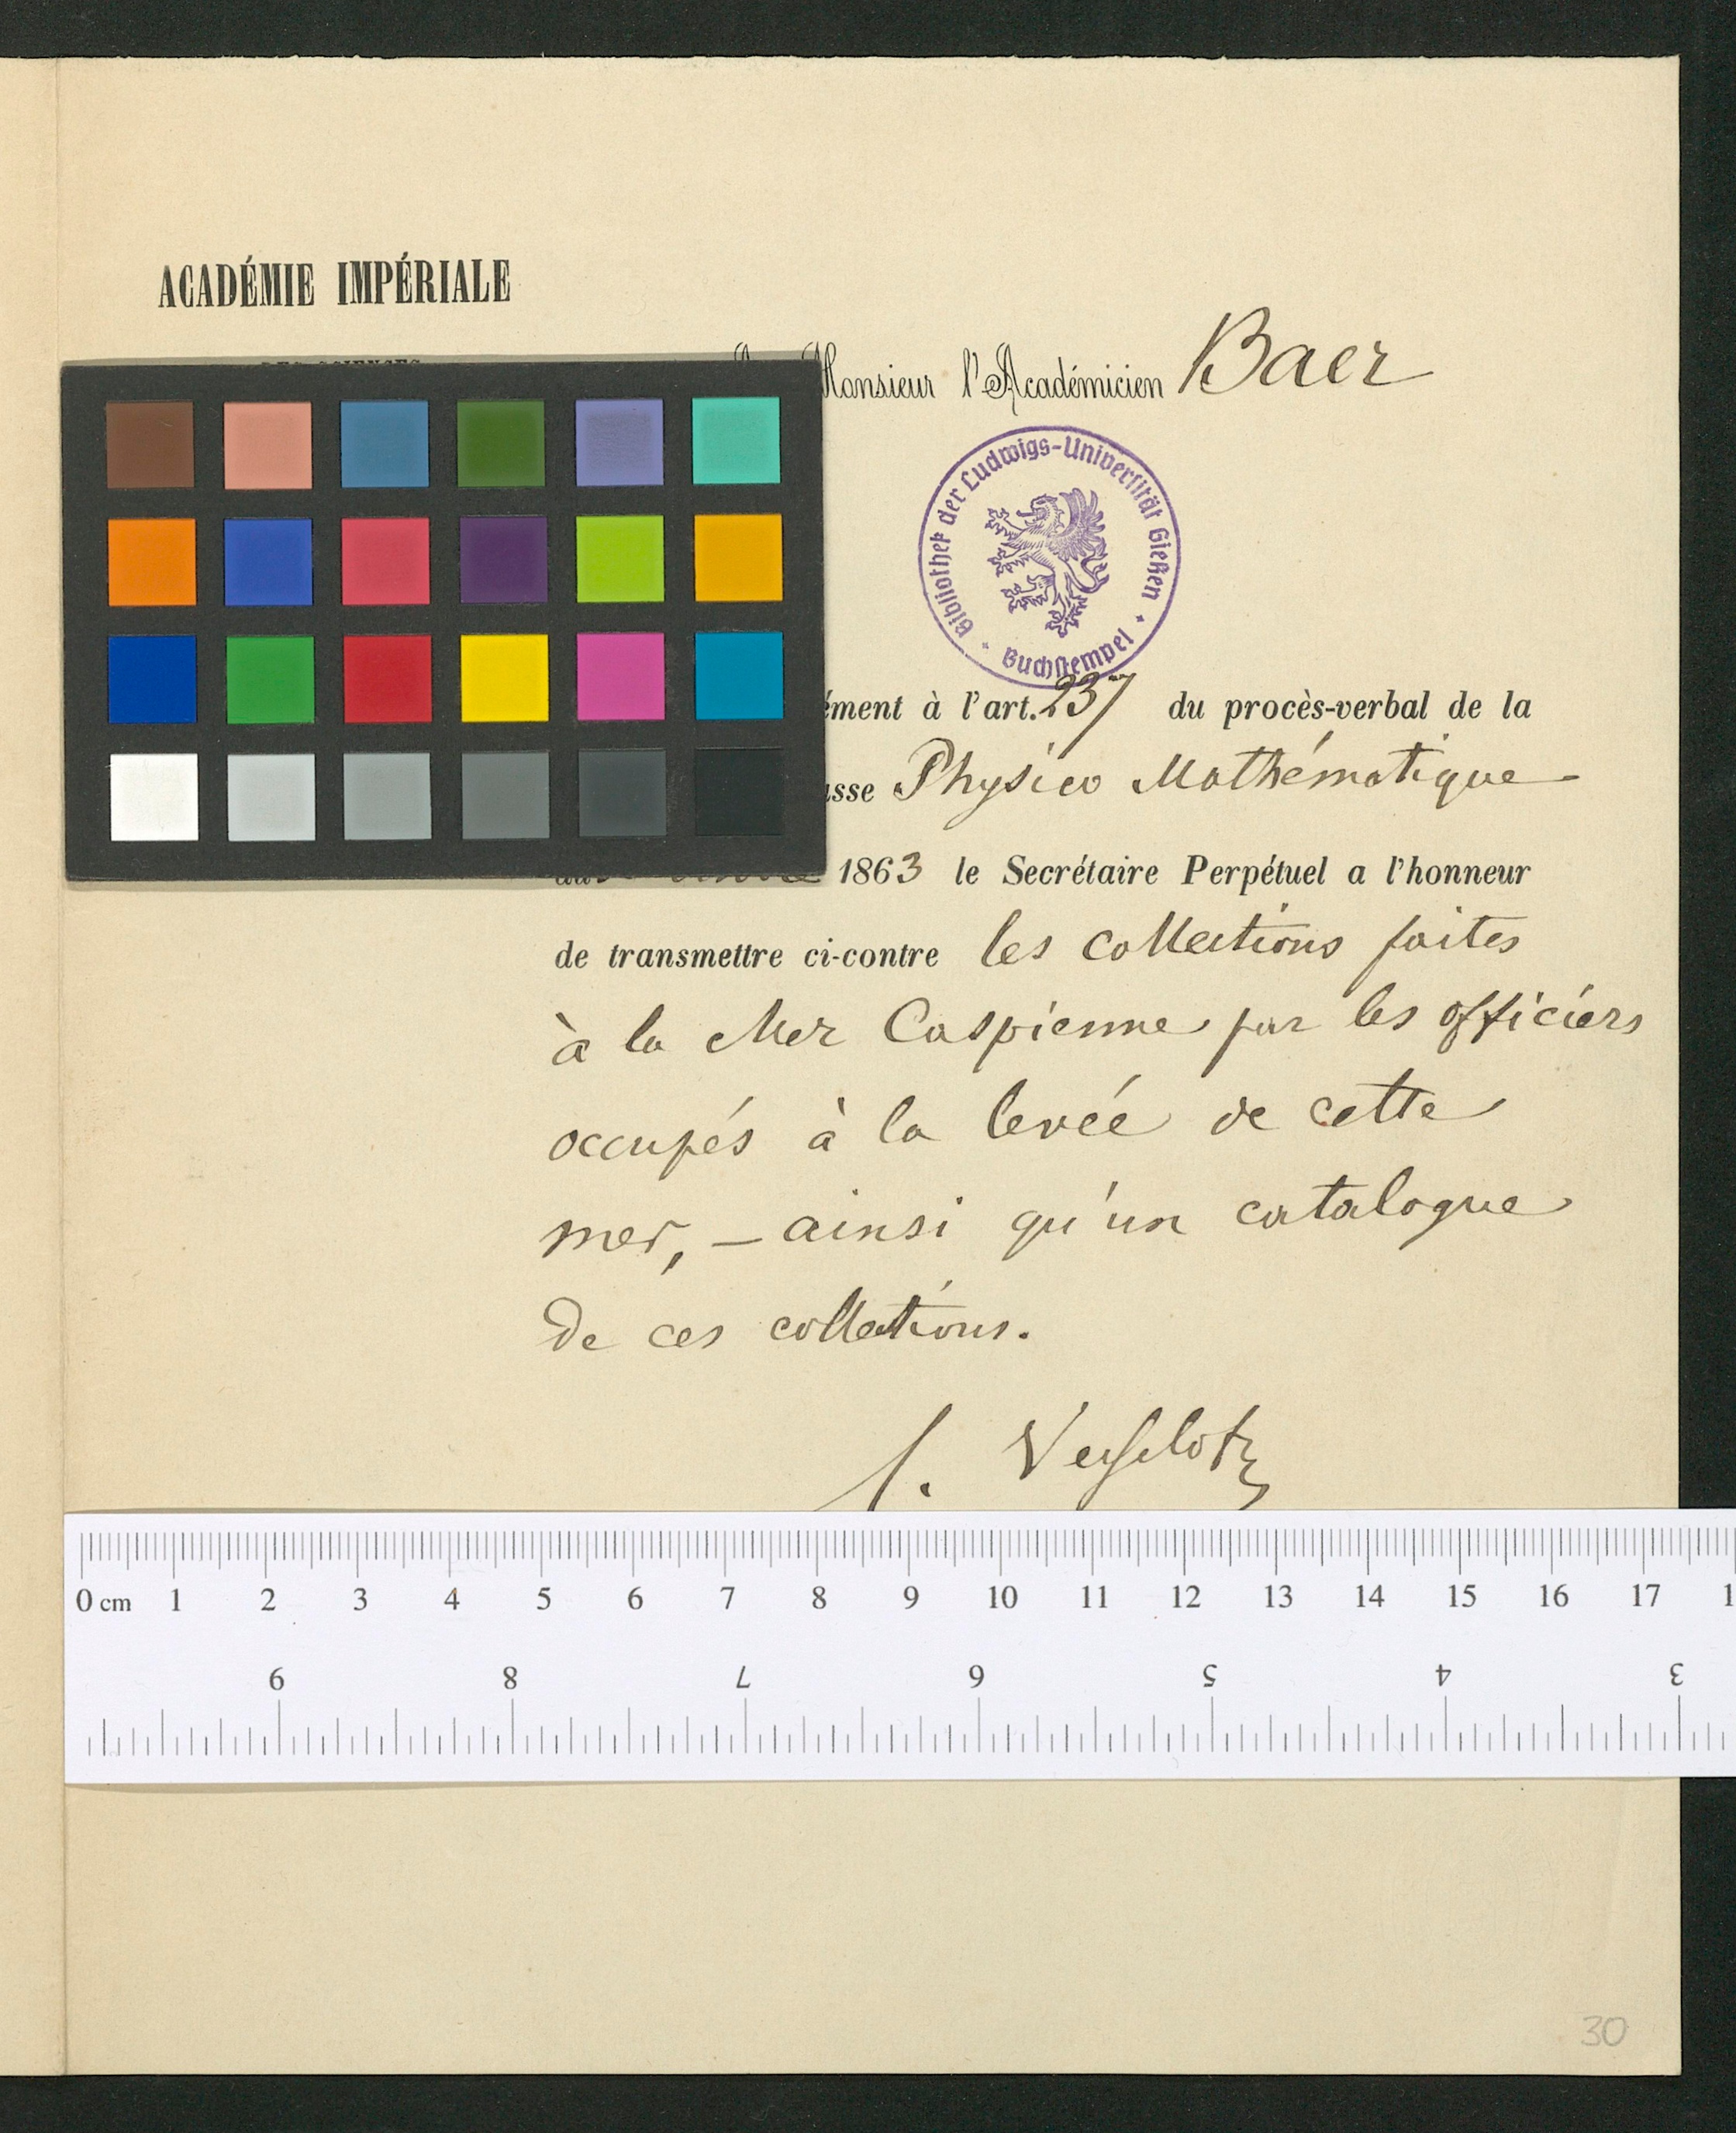 ACADÉMIE IMPÉRIALE
DES SCIENCES
Monsieur l'Académicien Baer
Bibliothek der Ludwigs-Universität Gießen
Buchstempel
ément à l'art. 237 du procès-verbal de la
sse Physico Mathématique
1863 le Secrétaire Perpétuel a l'honneur
de transmettre ci-contre les collections faites
à la Mer Caspienne par les officiers
occupés à la levée de cette
mer, – ainsi qu'un catalogue
de ces collections.
0 cm 1 2 3 4 5 6 7 8 9 10 11 12 13 14 15 16 17 1
9 8 7 6 5 4 3
30